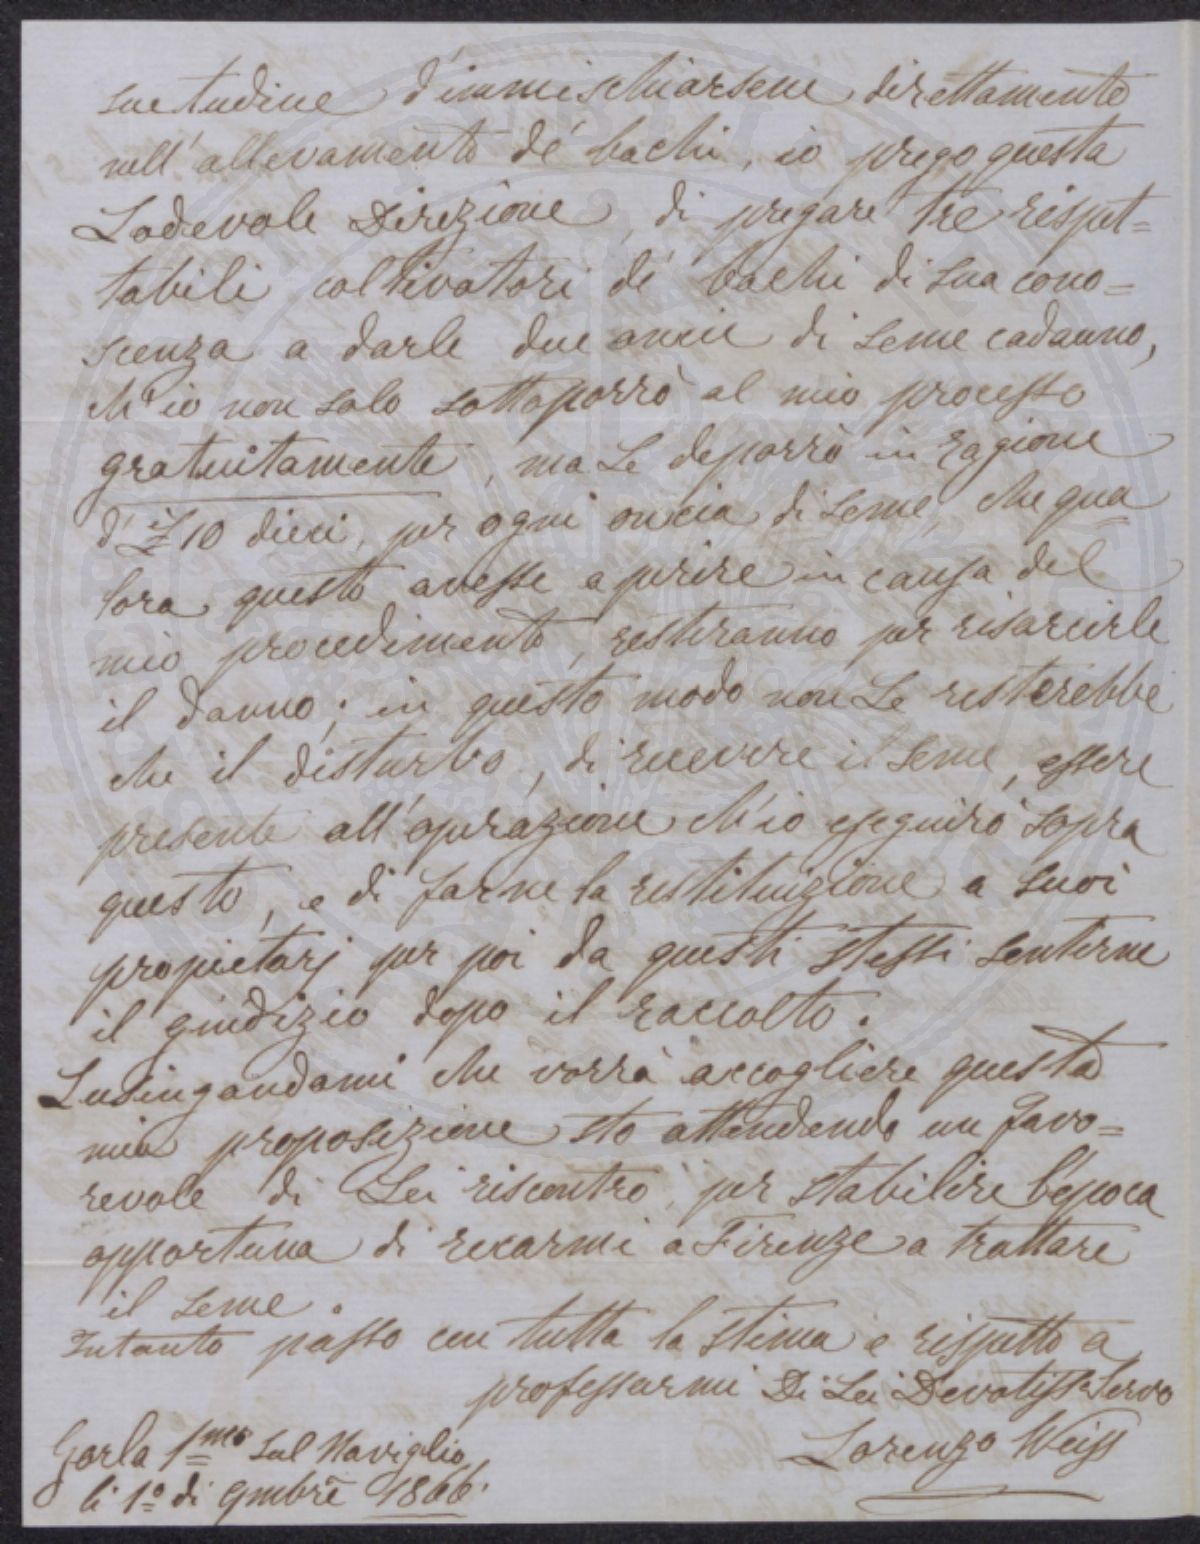 suetudine d'immischiarsene direttamente
nell'allevamento de' bachi, io prego questa
Lodevole Direzione, di pregare tre rispet=
tabili coltivatori de' bachi di sua cono=
scenza a darle due oncie di seme cadauno,
ch'io non solo sottoporrò al mio processo
gratuitamente, ma Le deporrò in raggione
d' it£ 10 dieci, per ogni oncia di seme, che qua
lora questo avesse a perire in causa del
mio procedimento, resteranno per risarcirle
il danno; in questo modo non Le resterebbe
che il disturbo, di ricevere il seme, essere
presente all'operazione ch'io eseguirò sopra
questo, e di farne la restituizione a suoi
propietarj per poi da questi stessi sentirne
il giudizio dopo il raccolto.
Lusingandomi che vorrà accogliere questa
mia proposizione sto attendendo un favo=
revole di Lei riscontro, per stabilire l'epoca
opportuna di recarmi a Firenze a trattare
il seme.
Intanto passo con tutta la stima e rispetto a
professarmi Di Lei Devotiss° Servo
Lorenzo Weiss
Gorla 1mo sul Naviglio
li 1° di 9mbre 1866.